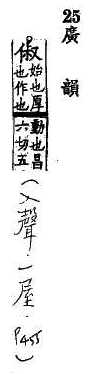 25廣韻
俶始也厚也作也動也昌六切五
(入聲·一屋·P455)